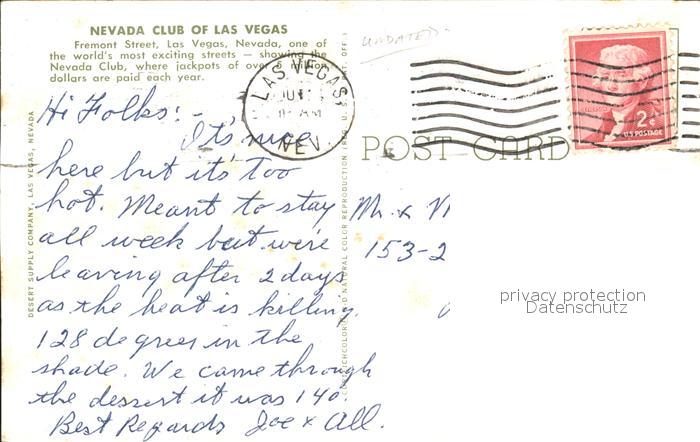 NEVADA CLUB OF LAS VEGAS
Fremont Street, Las Vegas, Nevada, one of
the world's most exciting streets — showing the
Nevada Club, where jackpots of over 5 million
dollars are paid each year.
UNDATED
LAS VEGAS
JUN
AM
NEV.
2¢
U.S. POSTAGE
POST CARD
Hi Folks: -
It's nice
here but it's too
hot. Meant to stay
all week but were
leaving after 2 days
as the heat is killing.
128 degrees in the
shade. We came through
the dessert it was 140
Best Regards Joe & All.
Mr. &
153-2
privacy protection
Datenschutz
DESERT SUPPLY COMPANY, LAS VEGAS, NEVADA
NATURAL COLOR REPRODUCTION